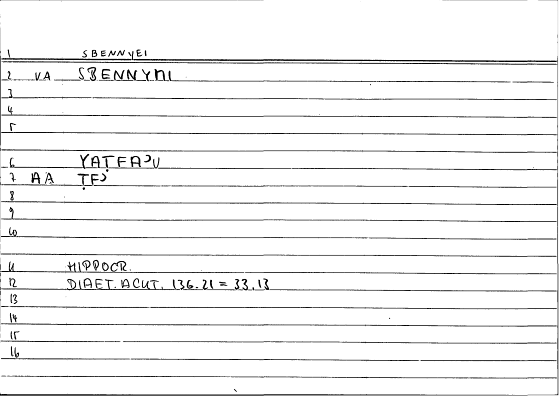 1 SBENNYEI
2 VA SBENNYNI
3
4
5
6 YATFA
7 AA TF
8
9
10
11 HIPPOCR.
12 DIAET. ACUT. 136.21 = 33,13
13
14
15
16